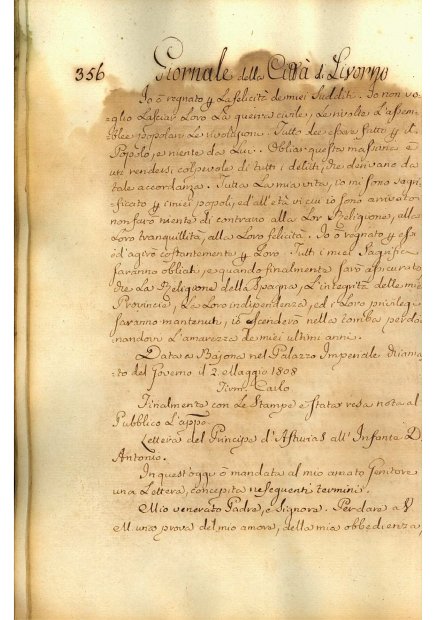 356 Giornale della Città di Livorno
Io ò regnato p la felicità de miei Sudditi. Io non vo
glio Lasciar Loro La guerra civile, Le rivolte, L'assem
blee popolari Le rivoluzioni. Tutto dee essere fatto p il
Popolo, e niente da Lui. Obliar questa massima è
un rendersi colpevole di tutti i delitti, che derivano da
tale accordanza. Tutta La mia vita, io mi sono sagri
ficato p i miei popoli, ed all'età in cui io sono arrivato
non farò niente di contrario alla Lor Religione, alla
Loro tranquillità, alla Loro felicità. Io ò regnato p essi
ed agirò costantemente p Loro. Tutti i miei Sagrifici
saranno obliati, e quando finalmente sarò assicurato
che La Religione della Spagna, L'integrità delle mie
Provincie, Le Loro indipendenza, ed i Loro privilegi
saranno mantenuti, io scenderò nella tomba perdo
nandovi L'amarezza de miei ultimi anni.
Data a Bajona nel Palazzo Imperiale chiama
to del Governo il 2. Maggio 1808
Firm. Carlo
Finalmente con Le Stampe è stata resa nota al
Pubblico L'app.
Lettera del Principe d'Asturias all'Infante D.
Antonio.
In quest'oggi ò mandata al mio amato Genitore
una Lettera, concepita ne seguenti termini.
Mio venerato Padre, e Signore. Per dare a V
M. una prova del mio amore, della mia obbedienza,